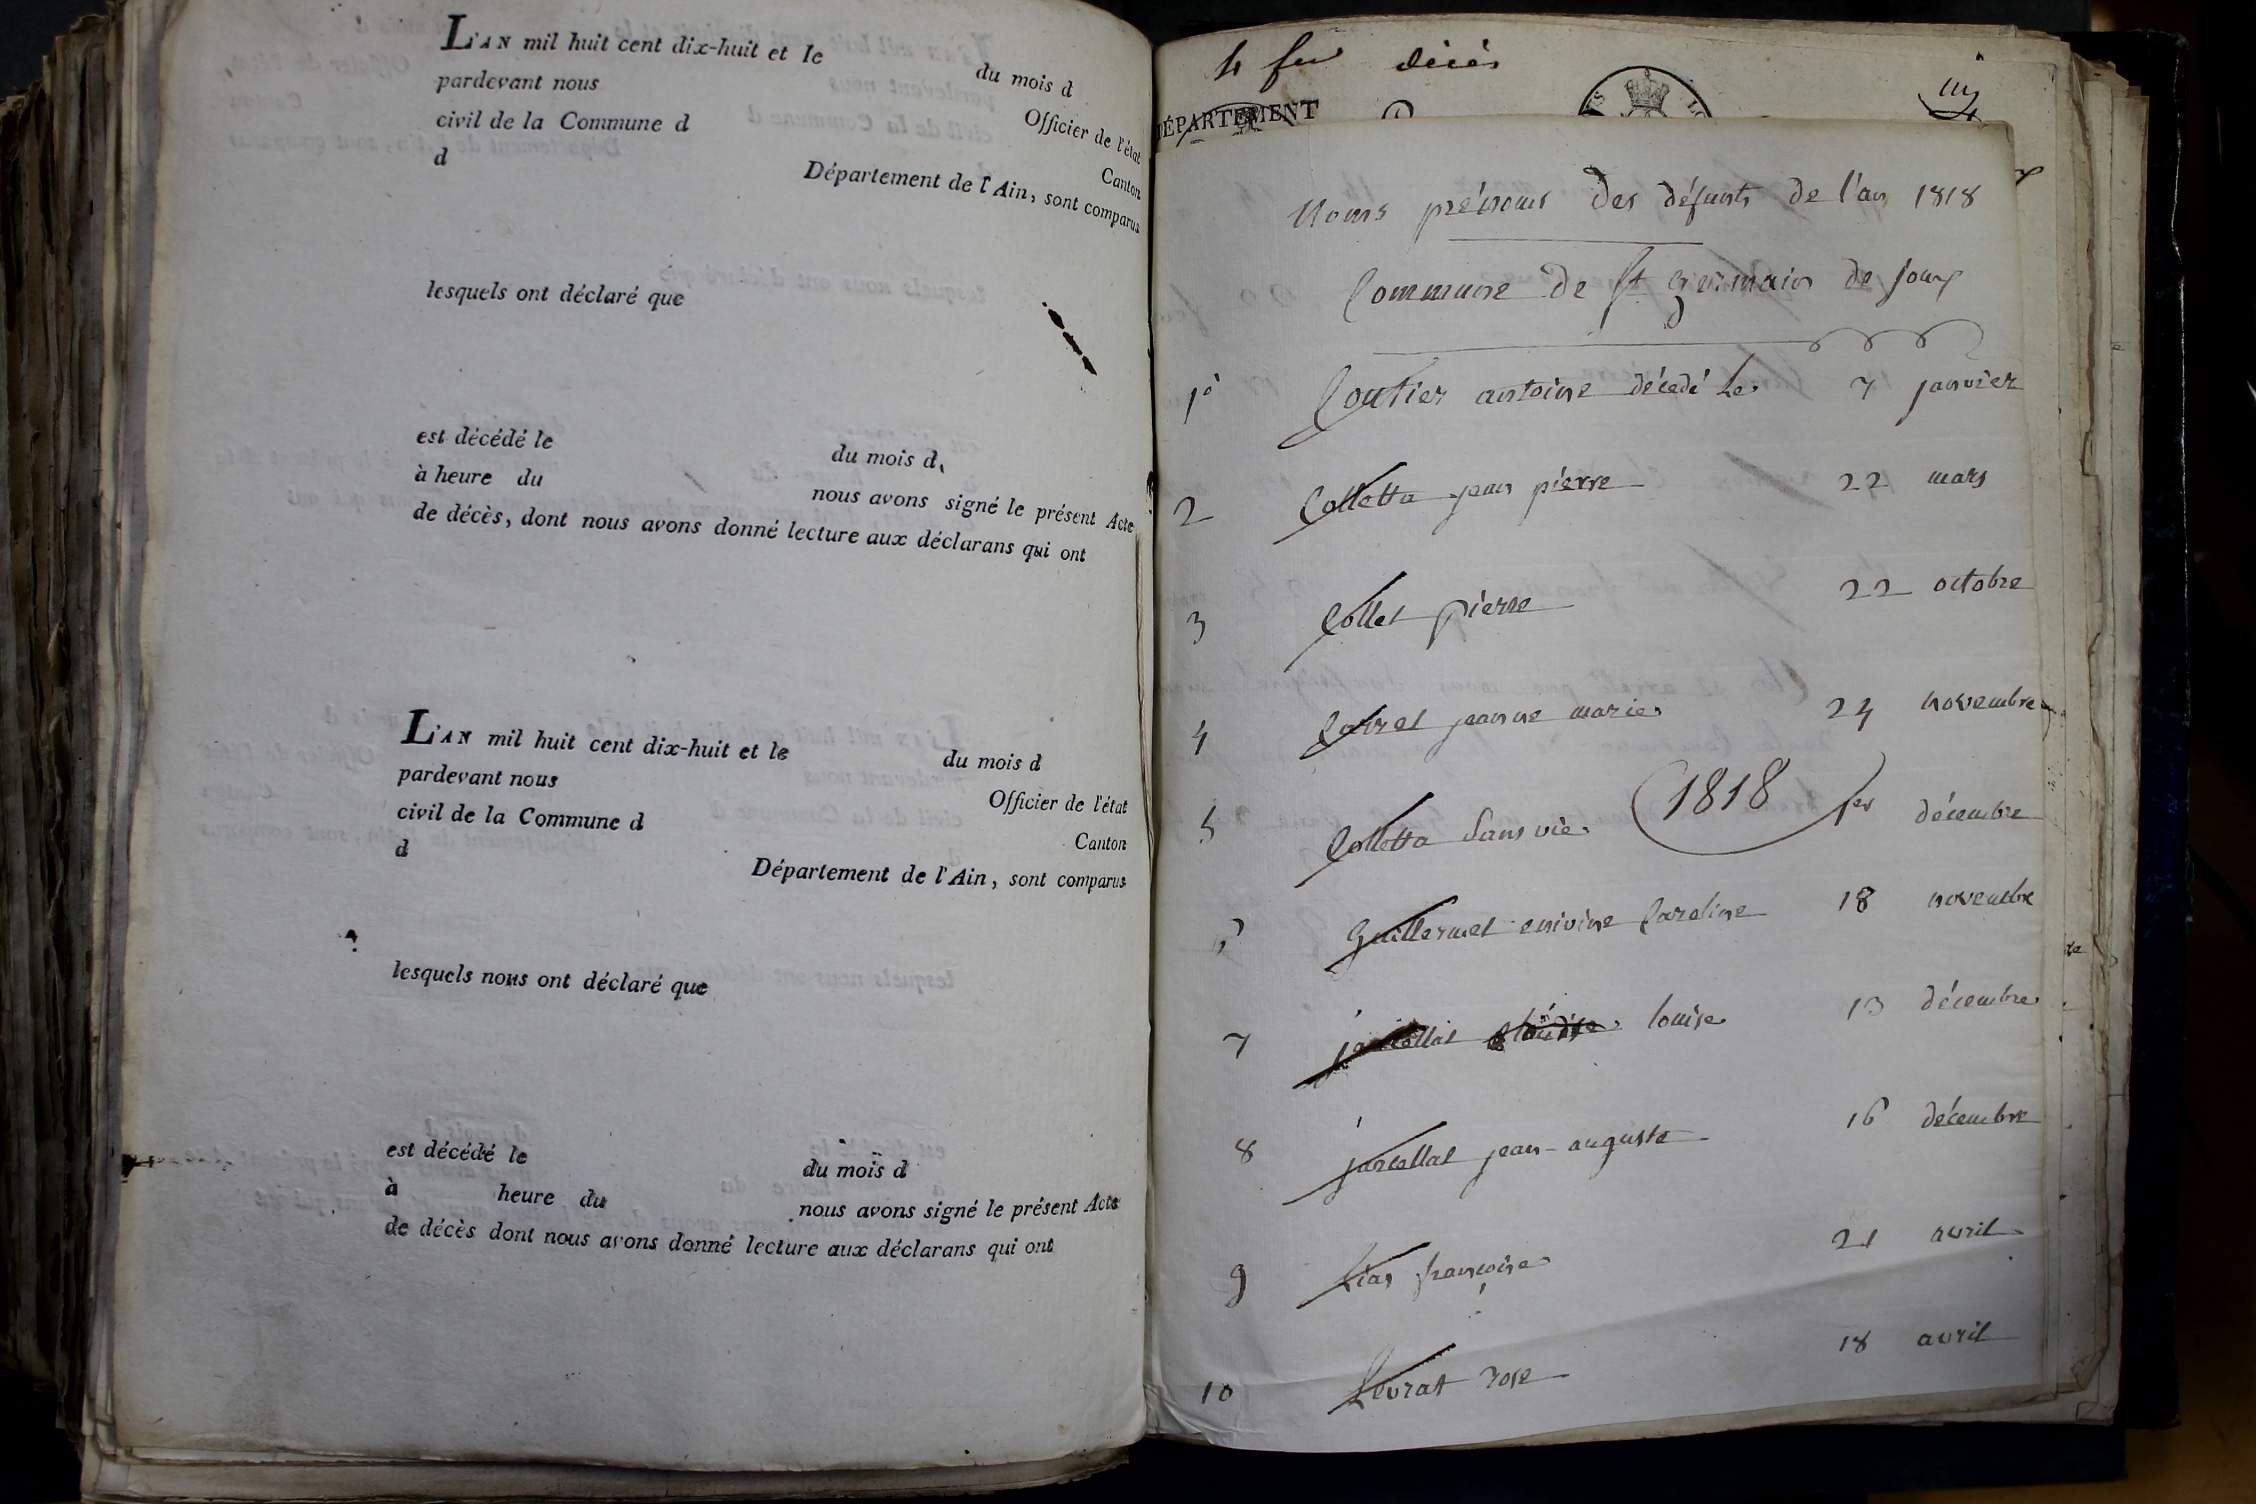 L'AN mil huit cent dix-huit et le du mois d
pardevant nous Officier de l'état
civil de la Commune d Canton
d Département de l'Ain, sont comparus
lesquels ont déclaré que
est décédé le du mois d
à heure du nous avons signé le présent Acte
de décès, dont nous avons donné lecture aux déclarans qui ont
L'AN mil huit cent dix-huit et le du mois d
pardevant nous Officier de l'état
civil de la Commune d Canton
d Département de l'Ain, sont comparus
lesquels nous ont déclaré que
est décédé le du mois d
à heure du nous avons signé le présent Acte
de décès dont nous avons donné lecture aux déclarans qui ont
4 décès
DÉPARTEMENT
Noms prénoms des défunts de l'an 1818
Commune de St germain de joux
1° Coutier antoine décedé le 7 janvier
2 Colletta jean pierre 22 mars
3 Collet pierre 22 octobre
4 Carret jeanne marie 24 novembre
5 Colletta sans vie 1818 1er décembre
6 Guillermet Caroline 18 novembre
7 jarcellat louise 13 décembre
8 jarcellat jean-auguste 16 décembre
9 françoise 21 avril
10 Levrat rose 18 avril